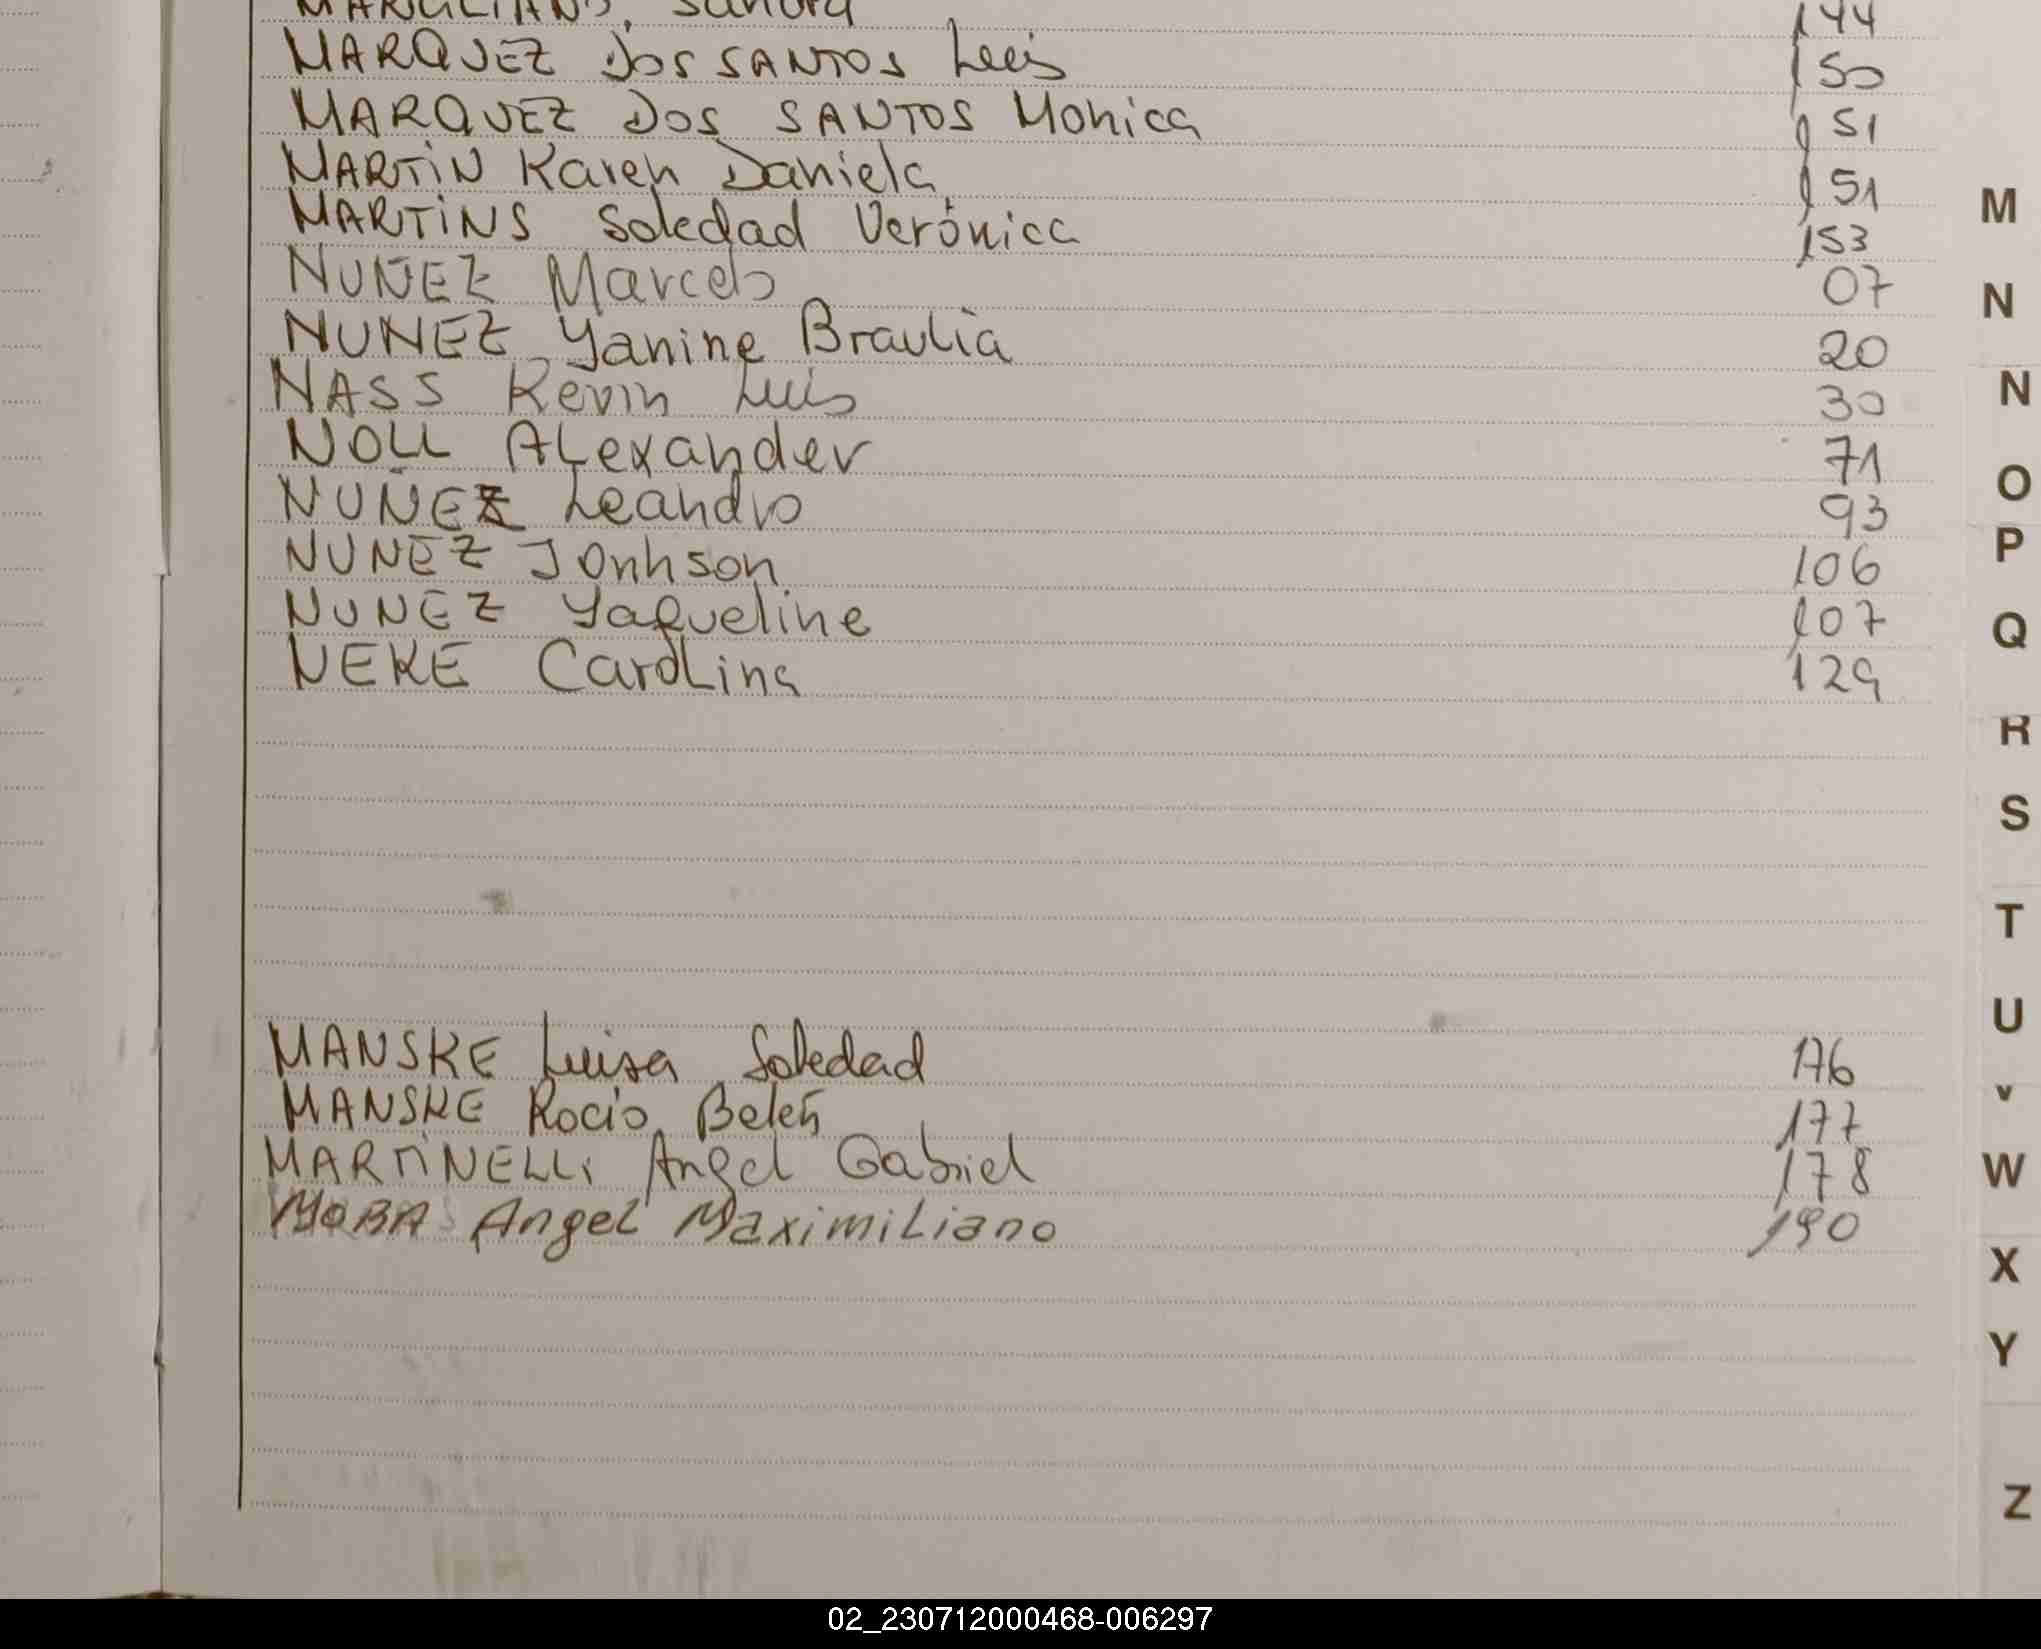 Sandra 144
MARQUEZ DOS SANTOS Luis 150
MARQUEZ DOS SANTOS Monica 151
MARTIN Karen Daniela 151
MARTINS Soledad Verónica 153
NUÑEZ Marcelo 07
NUNEZ Yanine Braulia 20
NASS Kevin Luis 30
NOLL Alexander 71
NUÑEZ Leandro 93
NUNEZ Jonhson 106
NUNEZ Yaqueline 107
NEKE Carolina 129
MANSKE Luisa Soledad 176
MANSKE Rocio Belén 177
MARTINELLI Angel Gabriel 178
Angel Maximiliano 190
M
N
N
O
P
Q
R
S
T
U
V
W
X
Y
Z
02_230712000468-006297